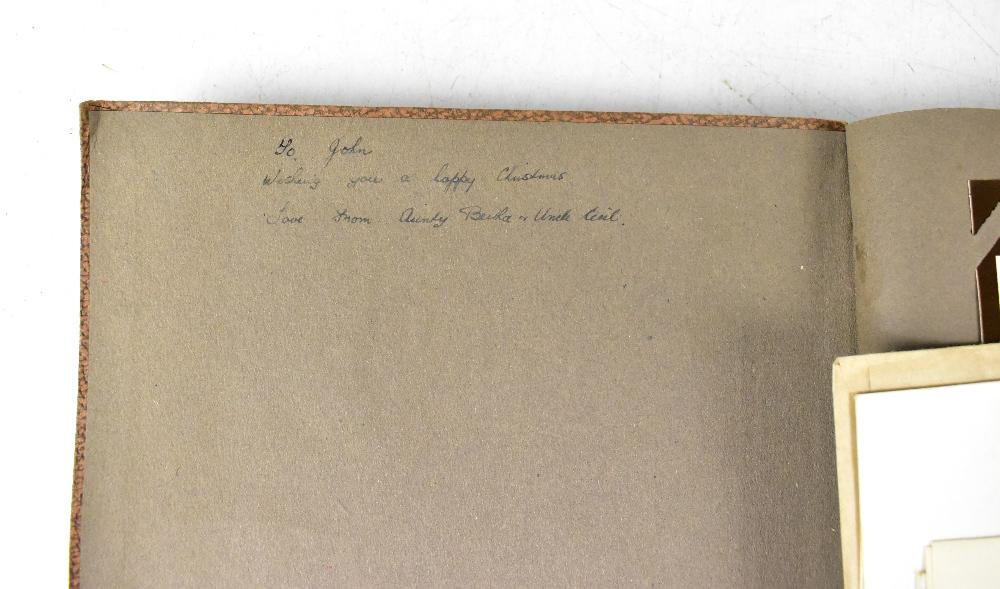 To John
Wishing you a happy Christmas
Love from Aunty & Uncle Cecil.